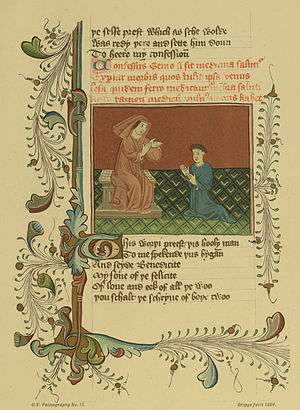 ye selfe prest which as sche wolde
Was redy yere and sette him doun
To heere my confessioun
Confessus Genio si sit medicina salutis
Experiar morbis quos tulit ipsa venus
lesa quidem ferro medicantur membra saluti
tamen medicum vulnus habet
This worþi preest þis holy man
To me spekende þus bygan
And seyde Benedicite
My sone of þe felicite
Of loue and eek of all þe woo
þou schalt þe schryue of boþe twoo
Palæography No.
Griggs